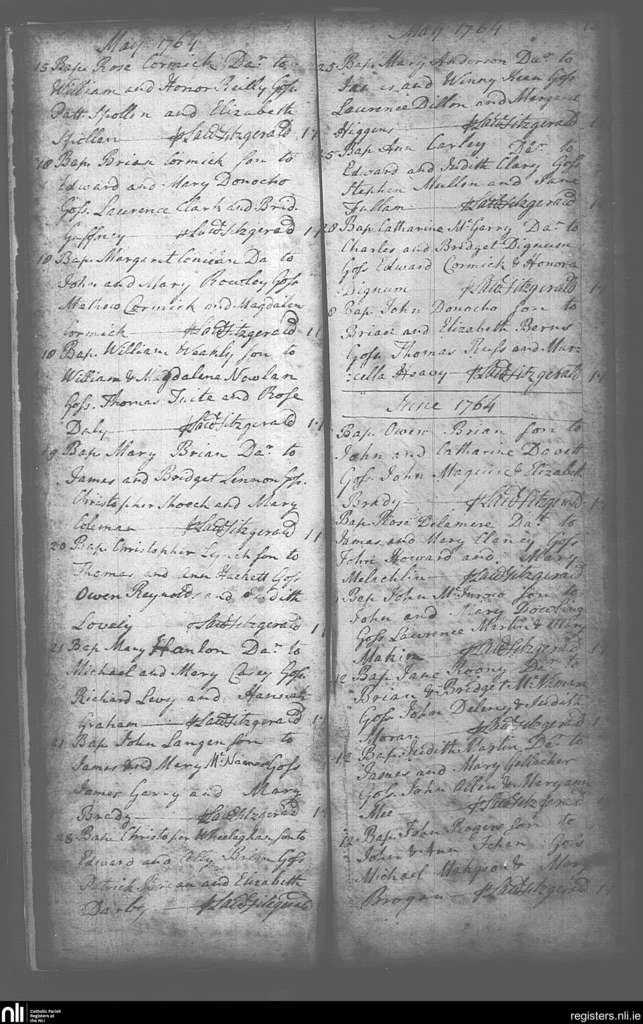 May 1764
15 Bap. Rose Cormick Dar. to
William and Honor Reilly Goss.
Patt Spollen and Elizabeth
Spollen p Laud Fitzgerald 1-1
18 Bap. Brian Cormick son to
Edward and Mary Donocho
Goss. Lawrence Clark and Brid.
Gaffney p Laud Fitzgerald 1-1
18 Bap. Margaret Da. to
John and Mary Rowley Goss
Mathew Cormick and Magdalen
Cormick p Laud Fitzgerald 1 1
18 Bap. William son to
William & Magdalene Nowlan
Goss. Thomas Tuite and Rose
Daly p Laud Fitzgerald 1-1
19 Bap. Mary Brian Dar. to
James and Bridget Lennon Goss.
Christopher and Mary
Coleman p Laud Fitzgerald 1 1
20 Bap. Christopher Lynch son to
Thomas and Ann Hackett Goss
Owen Reynolds and Judith
Lovely p Laud Fitzgerald 1 1
21 Bap. Mary Hanlon Dar. to
Michael and Mary Casey Goss.
Richard Levy and Hannah
Graham p Laud Fitzgerald 1-1
21 Bap. John Langan son to
James and Mary McNamee Goss
James Garry and Mary
Brady p Laud Fitzgerald 1-1
28 Bap. Christopher Wheelaghan son to
Edward and Brian Goss
Patrick Brian and Elizabeth
Darby p Laud Fitzgerald
May 1764
25 Bap. Mary Anderson Dar. to
James and Winny Kean Goss
Laurence Dillon and Margaret
Higgins p Laud Fitzgerald 1
25 Bap. Ann Carley Dar. to
Edward and Judith Clary Goss
Stephen Mullon and Jane
Fullam p Laud Fitzgerald 1-1
28 Bap. Catharine McGarry Dar. to
Charles and Bridget Dignum
Goss Edward Cormick & Honora
Dignum p Laud Fitzgerald 1-1
Bap. John Donocho son to
Brian and Elizabeth Berns
Goss. Thomas Russ and Mar-
cella Heavy p Laud Fitzgerald 1-1
June 1764
Bap. Owen Brian son to
John and Catharine
Goss. John Maguire & Elizabeth
Brady p Laud Fitzgerald 1-1
Bap. Rose Delamere Dar. to
James and Mary Clancy Goss
John Howard and Mary
Melachlin p Laud Fitzgerald
Bap. John son to
John and Mary Dowling
Goss Lawrence Martin & Mary
Makin p Laud Fitzgerald 1-1
12 Bap. Jane Roony Dar. to
Brian & Bridget
Goss John Deleny & Judith
Moran p Laud Fitzgerald 1
12 Bap. Judith Carlin Dar. to
James and Mary Gallacher
Goss. John Allen & Maryann
Mee p Laud Fitzgerald
12 Bap. John Rogers son to
John & Ann Goss
Michael & Mary
Brogan p Laud Fitzgerald 1-1
nli
Catholic Parish
Registers at
the NLI
registers.nli.ie